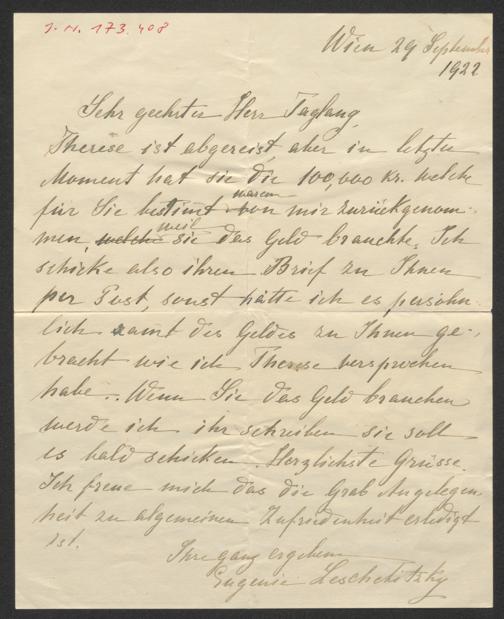 J. N. 173.408
Wien 29 September
1922
Sehr geehrter Herr Taglang,
Therese ist abgereist, aber in letzten
Moment hat sie die 100,000 Kr. welche
für Sie bestimt waren von mir zurückgenom-
men, welche weil sie das Geld brauchte. Ich
schicke also ihren Brief zu Ihnen
per Post, sonst hätte ich es persöhn-
lich samt des Geldes zu Ihnen ge-
bracht wie ich Therese versprochen
habe. Wenn Sie das Geld brauchen
werde ich ihr schreiben sie soll
es bald schicken. Herzlichste Grüsse.
Ich freue mich das die Grab Angelegen
heit zu algemeinen Zufriedenheit erledigt
ist.
Ihre ganz ergebene
Eugenie Leschetitzky